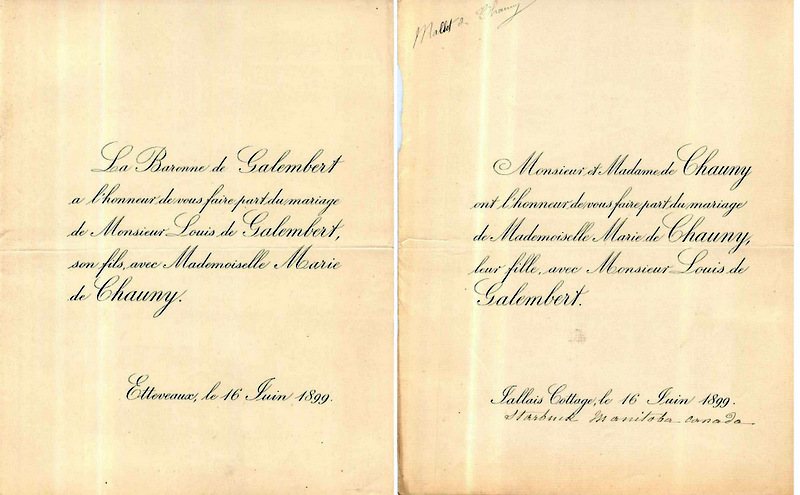 La Baronne de Galembert
a l'honneur de vous faire part du mariage
de Monsieur Louis de Galembert,
son fils, avec Mademoiselle Marie
de Chauny.
Etteveaux, le 16 Juin 1899.
Mallet de Chauny
Monsieur et Madame de Chauny
ont l'honneur de vous faire part du mariage
de Mademoiselle Marie de Chauny,
leur fille, avec Monsieur Louis de
Galembert.
Fallais Cottage, le 16 Juin 1899.
Starbuck Manitoba Canada